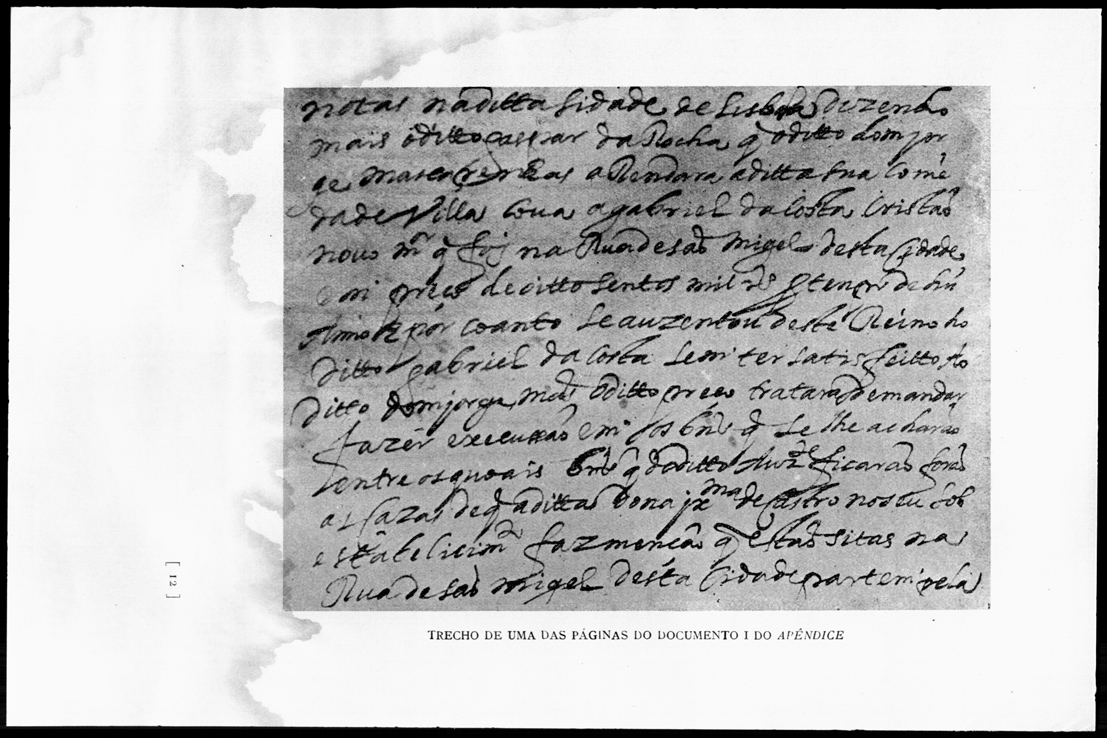 notas na ditta sidade de Lisboa dizendo
mais o ditto gaspar da Rocha q̃ o ditto dom jor
ge mascarenhas a Rendara a ditta sua Comẽ
da de Villa Cova a gabriel da Costa Cristaõ
novo mor q̃ foj na Rua de saõ migel desta Cidade
em preco de oitto sentos mil rs
por coanto se auzentou deste Reino ho
Ditto gabriel da Costa sem ter satisfeitto Ao
Ditto dom jorge mas o ditto preco trataraõ de mandar
fazer execussaõ em seos bñs q̃ se lhe acharaõ
entre os quoais bñs q̃ do ditto ficaraõ foraõ
as cazas de q̃ a ditta Dona de Castro no seu sob
estabelicimto faz mencaõ q̃ estaõ sitas na
Rua de saõ migel desta Cidade partem pela
TRECHO DE UMA DAS PÁGINAS DO DOCUMENTO I DO APÊNDICE
[ 12 ]